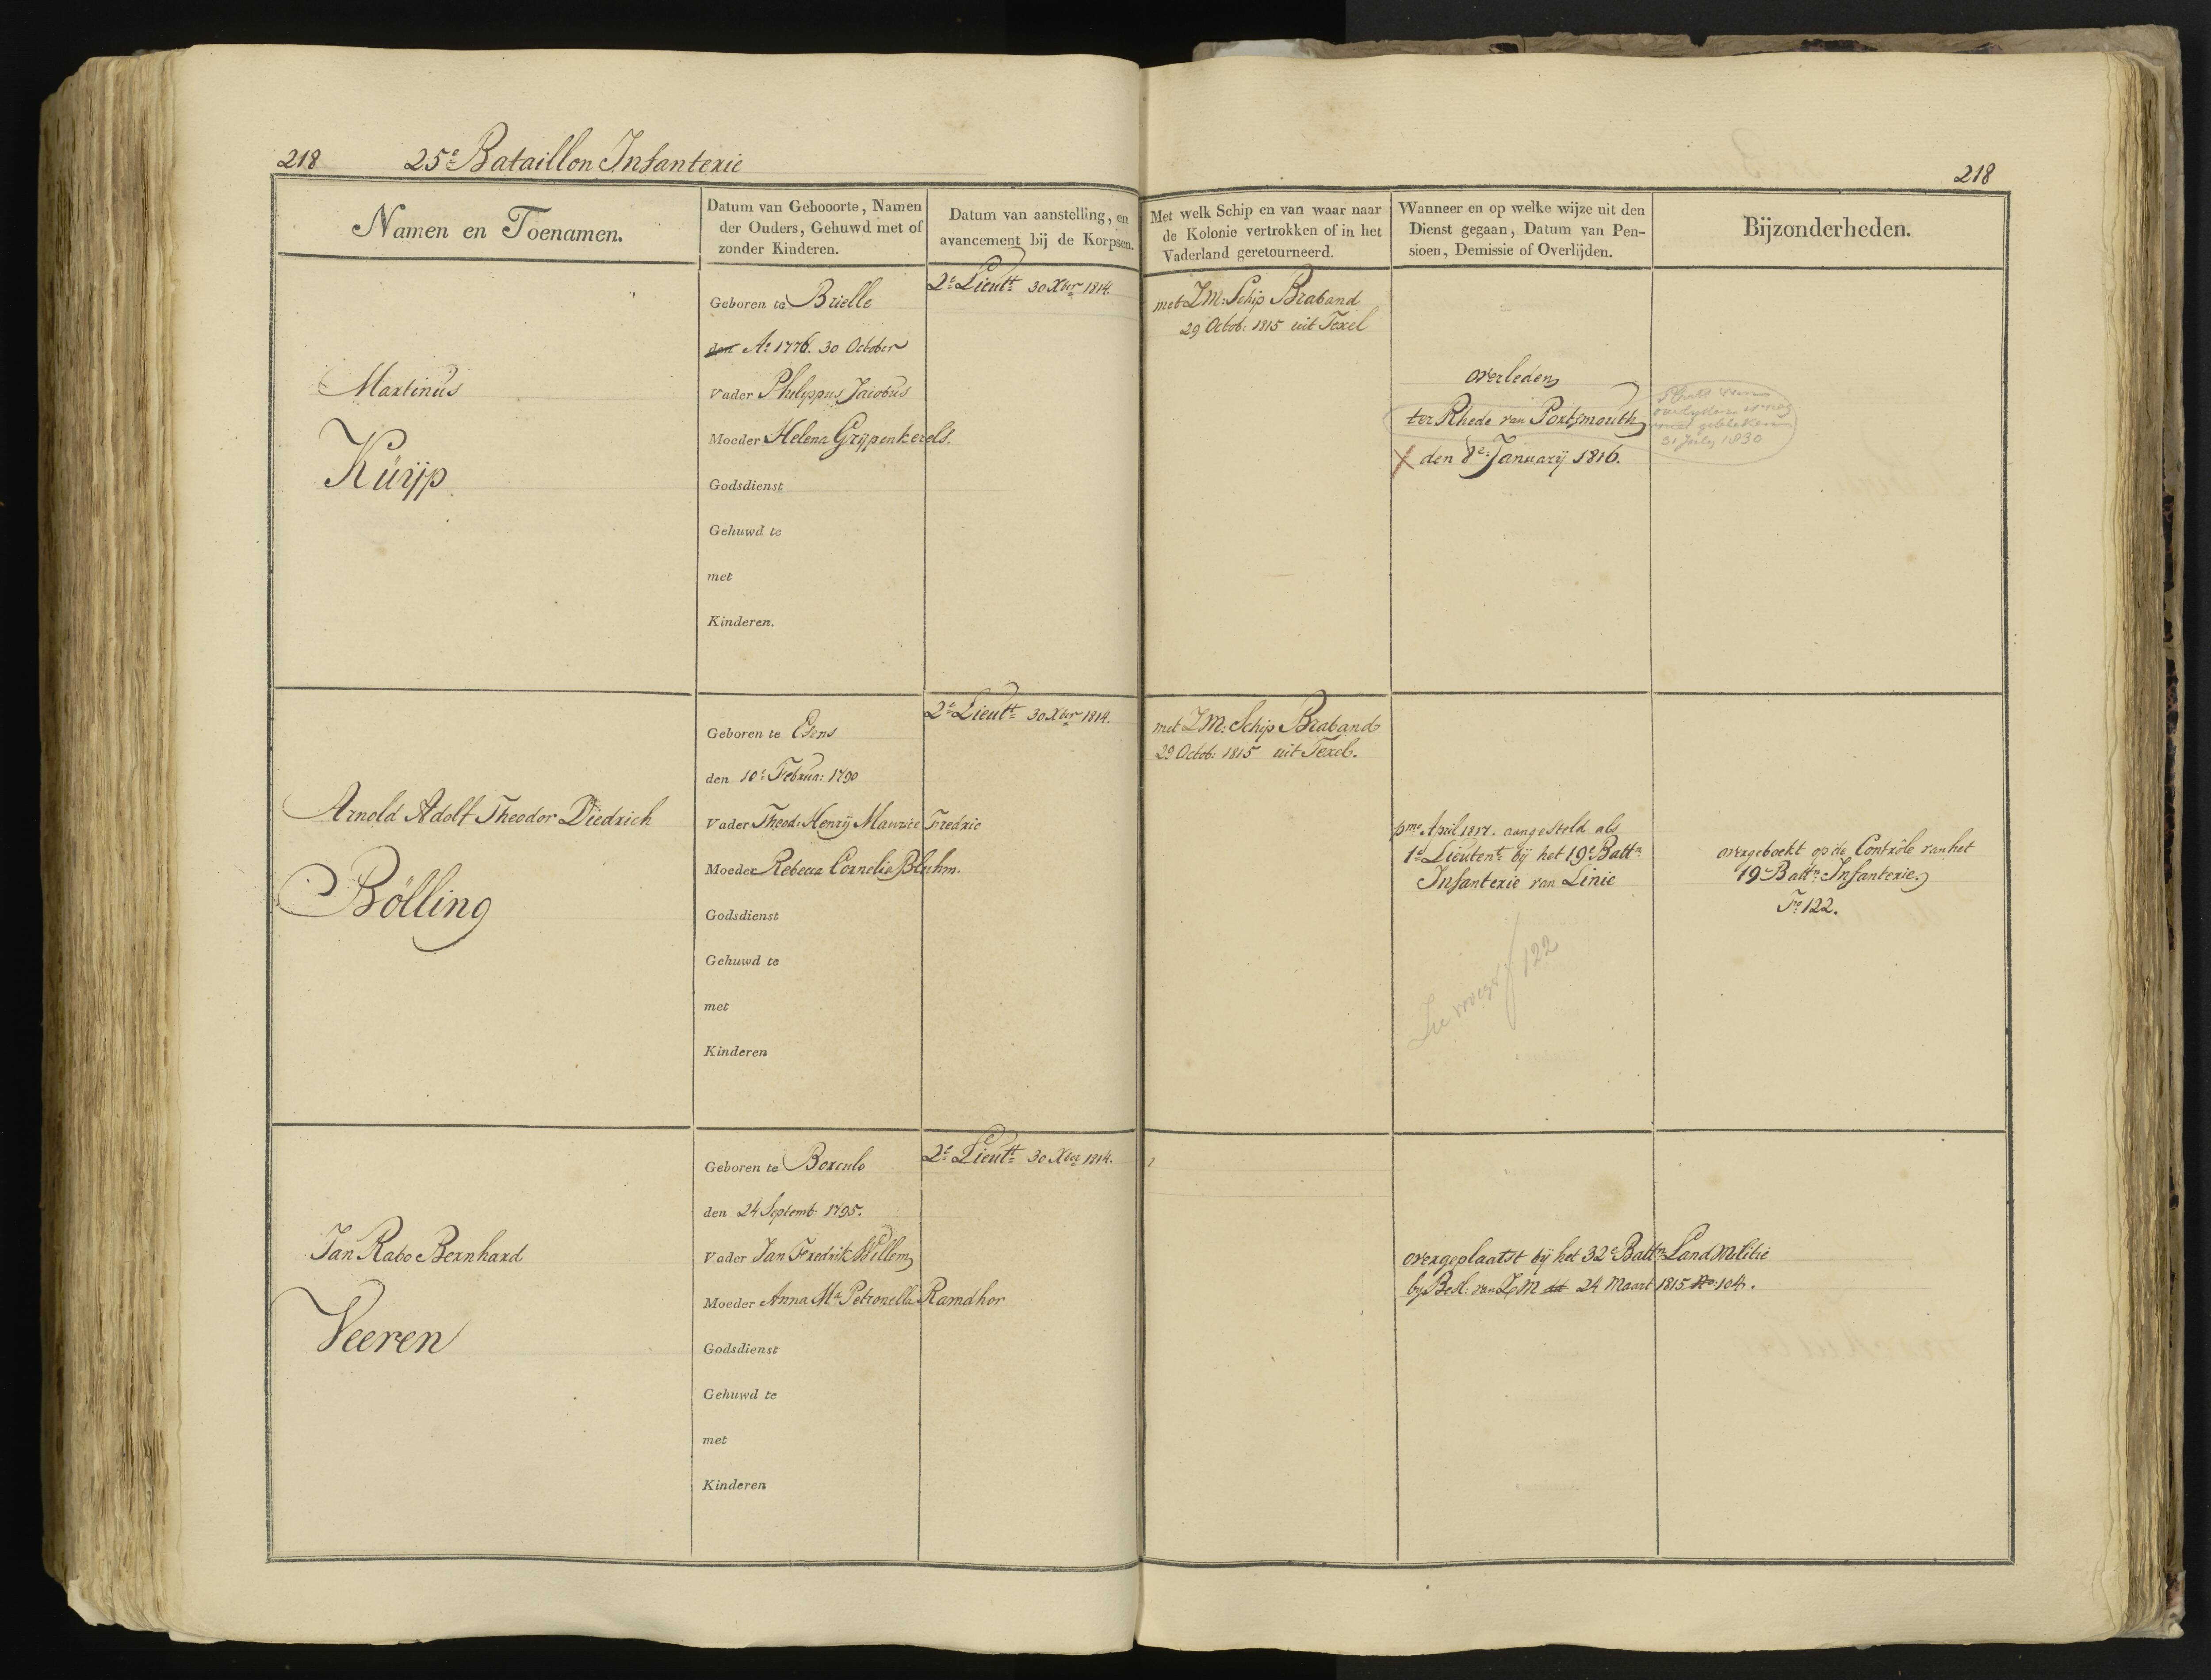 218 25e Bataillon Infanterie
218
Namen en Toenamen.
Datum van Gebooorte, Namen
der Ouders, Gehuwd met of
zonder Kinderen.
Datum van aanstelling, en
avancement bij de Korpsen.
Met welk Schip en van waar naar
de Kolonie vertrokken of in het
Vaderland geretourneerd.
Wanneer en op welke wijze uit den
Dienst gegaan, Datum van Pen-
sioen, Demissie of Overlijden.
Bijzonderheden.
Martinus
Küijp
Geboren te Brielle
den Ao 1776. 30 October
Vader Philippus Jacobus
Moeder Helena Grijpenkerels.
Godsdienst
Gehuwd te
met
Kinderen.
2e Lieutt 30 Xber 1814.
met Z.M: Schip Braband
29 Octob: 1815 uit Texel
overleden
ter Rhede van Portsmouth
den 8e January 1816.
van
overlyden is nog
niet gebleken
31 July 1830
Arnold Adolf Theodor Diedrich
Bölling
Geboren te Esens
den 10e Februa: 1790
Vader Theod: Henrij Maurice Fredric
Moeder Rebecca Cornelia Bluhm.
Godsdienst
Gehuwd te
met
Kinderen
2e Lieutt 30 Xber 1814.
met Z.M: Schip Braband
29 Octob: 1815 uit Texel.
pmo April 1817. aangesteld als
1e Lieutent bij het 19e Battn
Infanterie van Linie
Zie vroeger f 122
overgeboekt op de Contrôle van het
19e Battn Infanterie
Fo 122.
Jan Rabo Bernhard
Veeren
Geboren te Borculo
den 24 Septemb: 1795.
Vader Jan Fredrik Willem
Moeder Anna Ma Petronella Ramdhor
Godsdienst
Gehuwd te
met
Kinderen
2e Lieutt 30 Xber 1814.
overgeplaatst bij het 32e Battn Landmilitie
by Besl: van Z.M dd 24 Maart 1815 No 104.